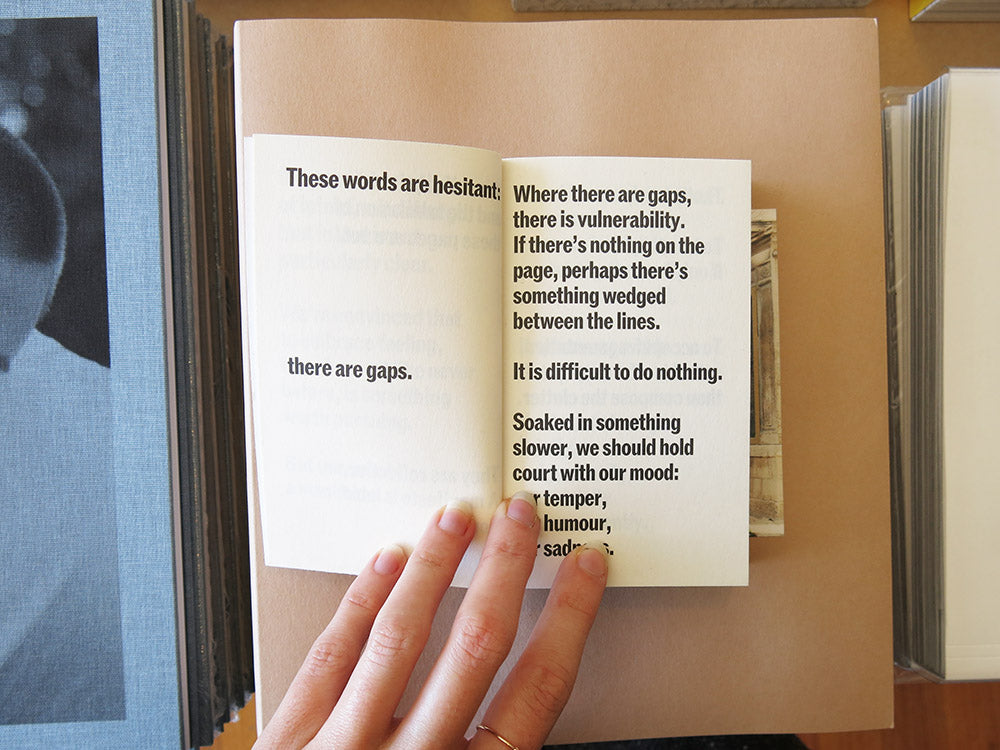 These words are hesitant:
there are gaps.
Where there are gaps,
there is vulnerability.
If there's nothing on the
page, perhaps there's
something wedged
between the lines.
It is difficult to do nothing.
Soaked in something
slower, we should hold
court with our mood:
temper,
humour,